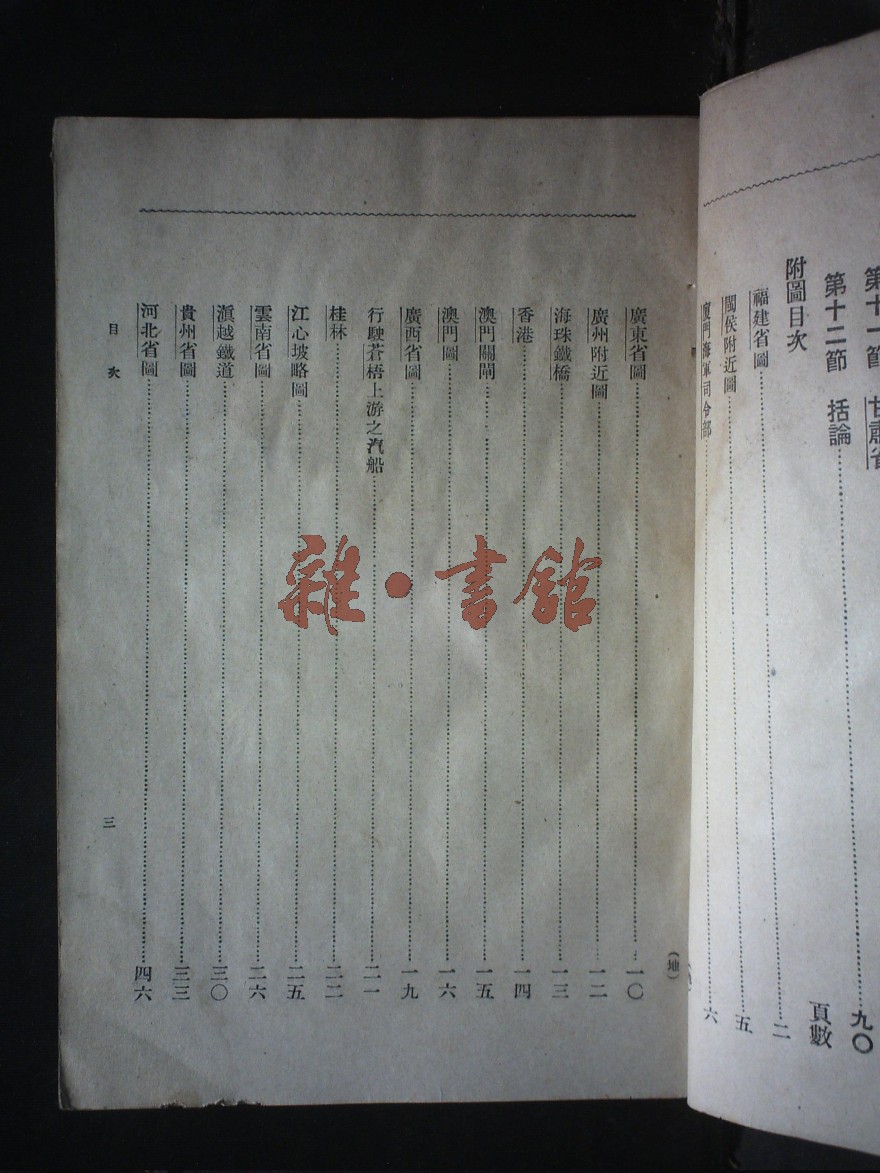 第十一節 甘肅省
第十二節 括論……九〇
附圖目次 頁數
福建省圖……二
閩侯附近圖……五
廈門海軍司令部……六
廣東省圖……一〇
廣州附近圖……一二
海珠鐵橋……一三
香港……一四
澳門關閘……一五
澳門圖……一六
廣西省圖……一九
行駛蒼梧上游之汽船……二一
桂林……二二
江心坡略圖……二五
雲南省圖……二六
滇越鐵道……三〇
貴州省圖……三三
河北省圖……四六
目次 三
(地)
雜·書館